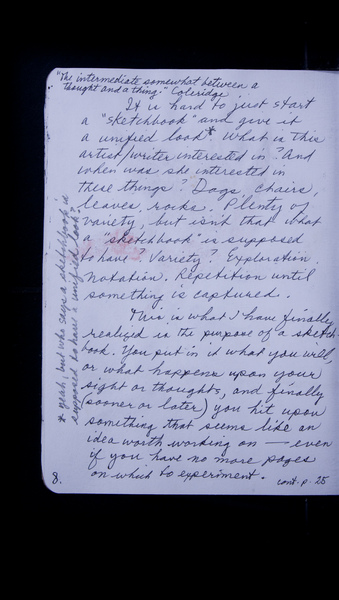 "The intermediate somewhat between a
thought and a thing." Coleridge
It is hard to just start
a "sketchbook" and give it
a unified look*. What is this
artist/writer interested in? And
when was she interested in
these things? Dogs, chairs,
leaves, rocks. Plenty of
variety, but isn't that what
a "sketchbook" is supposed
to have? Variety? Exploration.
Notation. Repetition until
something is captured.
This is what I have finally
realized is the purpose of a sketch-
book. You put in it what you will,
or what happens upon your
sight or thoughts, and finally
(sooner or later) you hit upon
something that seems like an
idea worth working on — even
if you have no more pages
on which to experiment.
cont. p. 25
8.
* Yeah, but who says a sketchbook is
supposed to have a unified look?